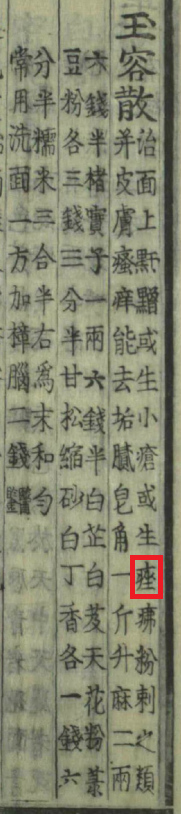 玉容散
治面上䵟䵳或生小瘡或生痤疿粉刺之類
并皮膚瘙痒能去垢膩皂角一斤升麻二兩
六錢半楮實子一兩六錢半白芷白芨天花粉菉
豆粉各三錢三分半甘松縮砂白丁香各一錢六
分半糯米三合半右爲末和匀
常用洗面一方加樟腦二錢醫鑑